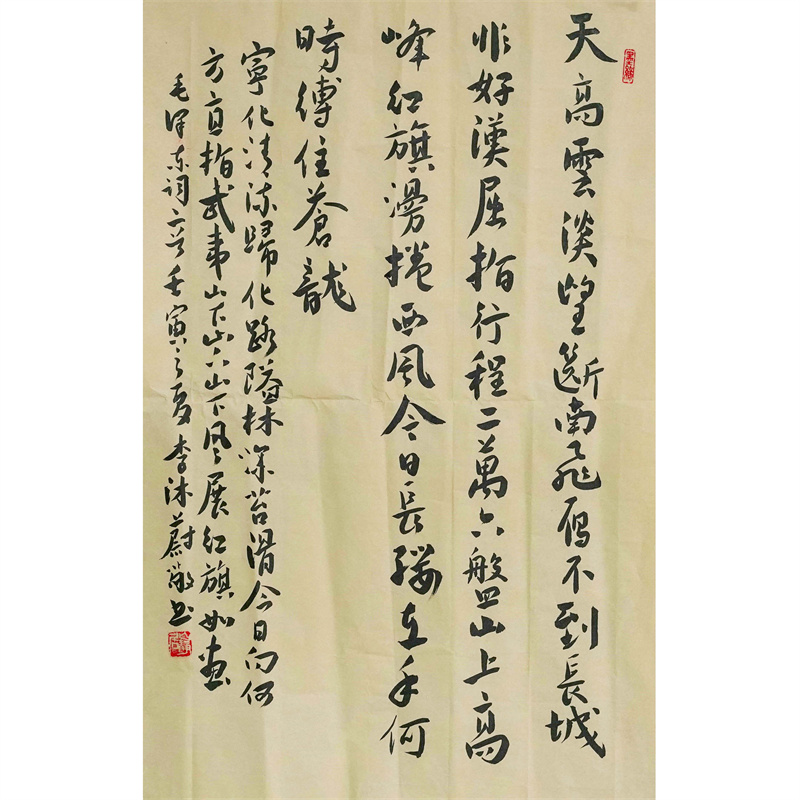 天高雲淡望斷南飛雁不到長城
非好漢屈指行程二萬六盤山上高
峰紅旗漫捲西風今日長纓在手何
時縛住蒼龍
寧化清流歸化路隘林深苔滑今日向何
方直指武夷山下山下山下風展紅旗如畫
毛泽东词二首壬寅之夏李沐蔚敬书